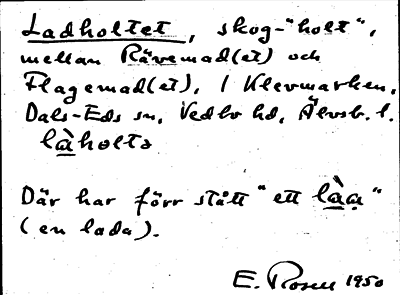 Ladholtet, skog-"holt",
mellan Rävemad(et) och
Flagemad(et), I Klevmarken,
Dals-Eds sn, Vedbo hd, Älvsb. l.
làholtə
Där har förr stått "ett làa̤"
(en lada).
E. Rosell 1950